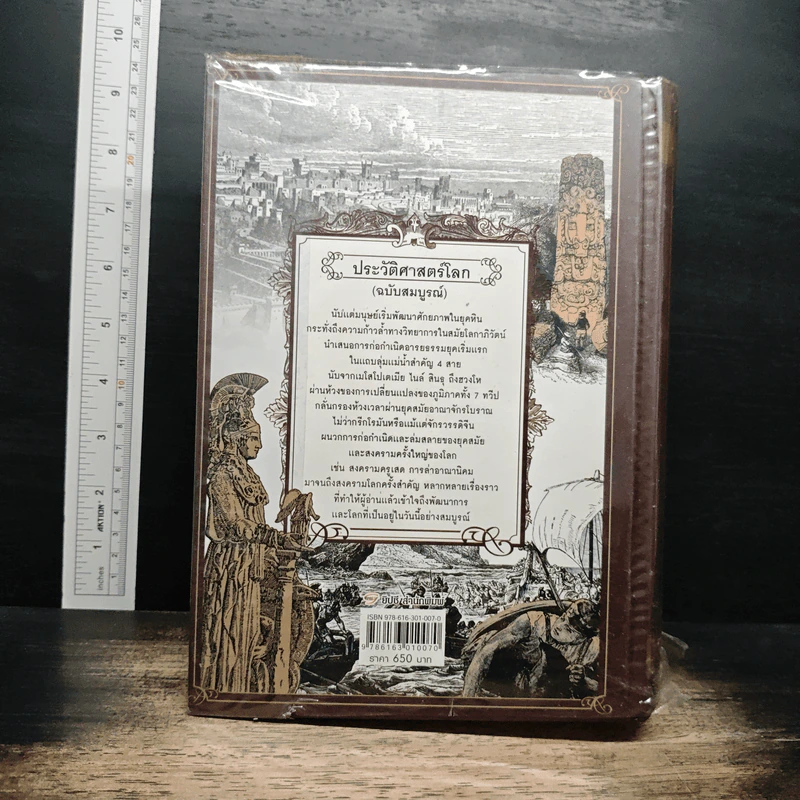 ประวัติศาสตร์โลก
(ฉบับสมบูรณ์)
นับแต่มนุษย์เริ่มพัฒนาศักยภาพในยุคหิน
กระทั่งถึงความก้าวล้ำทางวิทยาการในสมัยโลกาภิวัตน์
นำเสนอการก่อกำเนิดอารยธรรมยุคเริ่มแรก
ในแถบลุ่มแม่น้ำสำคัญ 4 สาย
นับจากเมโสโปเตเมีย ไนล์ สินธุ ถึงฮวงโห
ผ่านห้วงของการเปลี่ยนแปลงของภูมิภาคทั้ง 7 ทวีป
กลั่นกรองห้วงเวลาผ่านยุคสมัยอาณาจักรโบราณ
ไม่ว่ากรีกโรมันหรือแม้แต่จักรวรรดิจีน
ผนวกการก่อกำเนิดและล่มสลายของยุคสมัย
และสงครามครั้งใหญ่ของโลก
เช่น สงครามครูเสด การล่าอาณานิคม
มาจนถึงสงครามโลกครั้งสำคัญ หลากหลายเรื่องราว
ที่ทำให้ผู้อ่านแล้วเข้าใจถึงพัฒนาการ
และโลกที่เป็นอยู่ในวันนี้อย่างสมบูรณ์
ยิปซี สำนักพิมพ์
ISBN 978-616-301-007-0
9 786163 010070
ราคา 650 บาท
10
9
8
7
6
5
4
3
2
1
inches
AKTION
cms